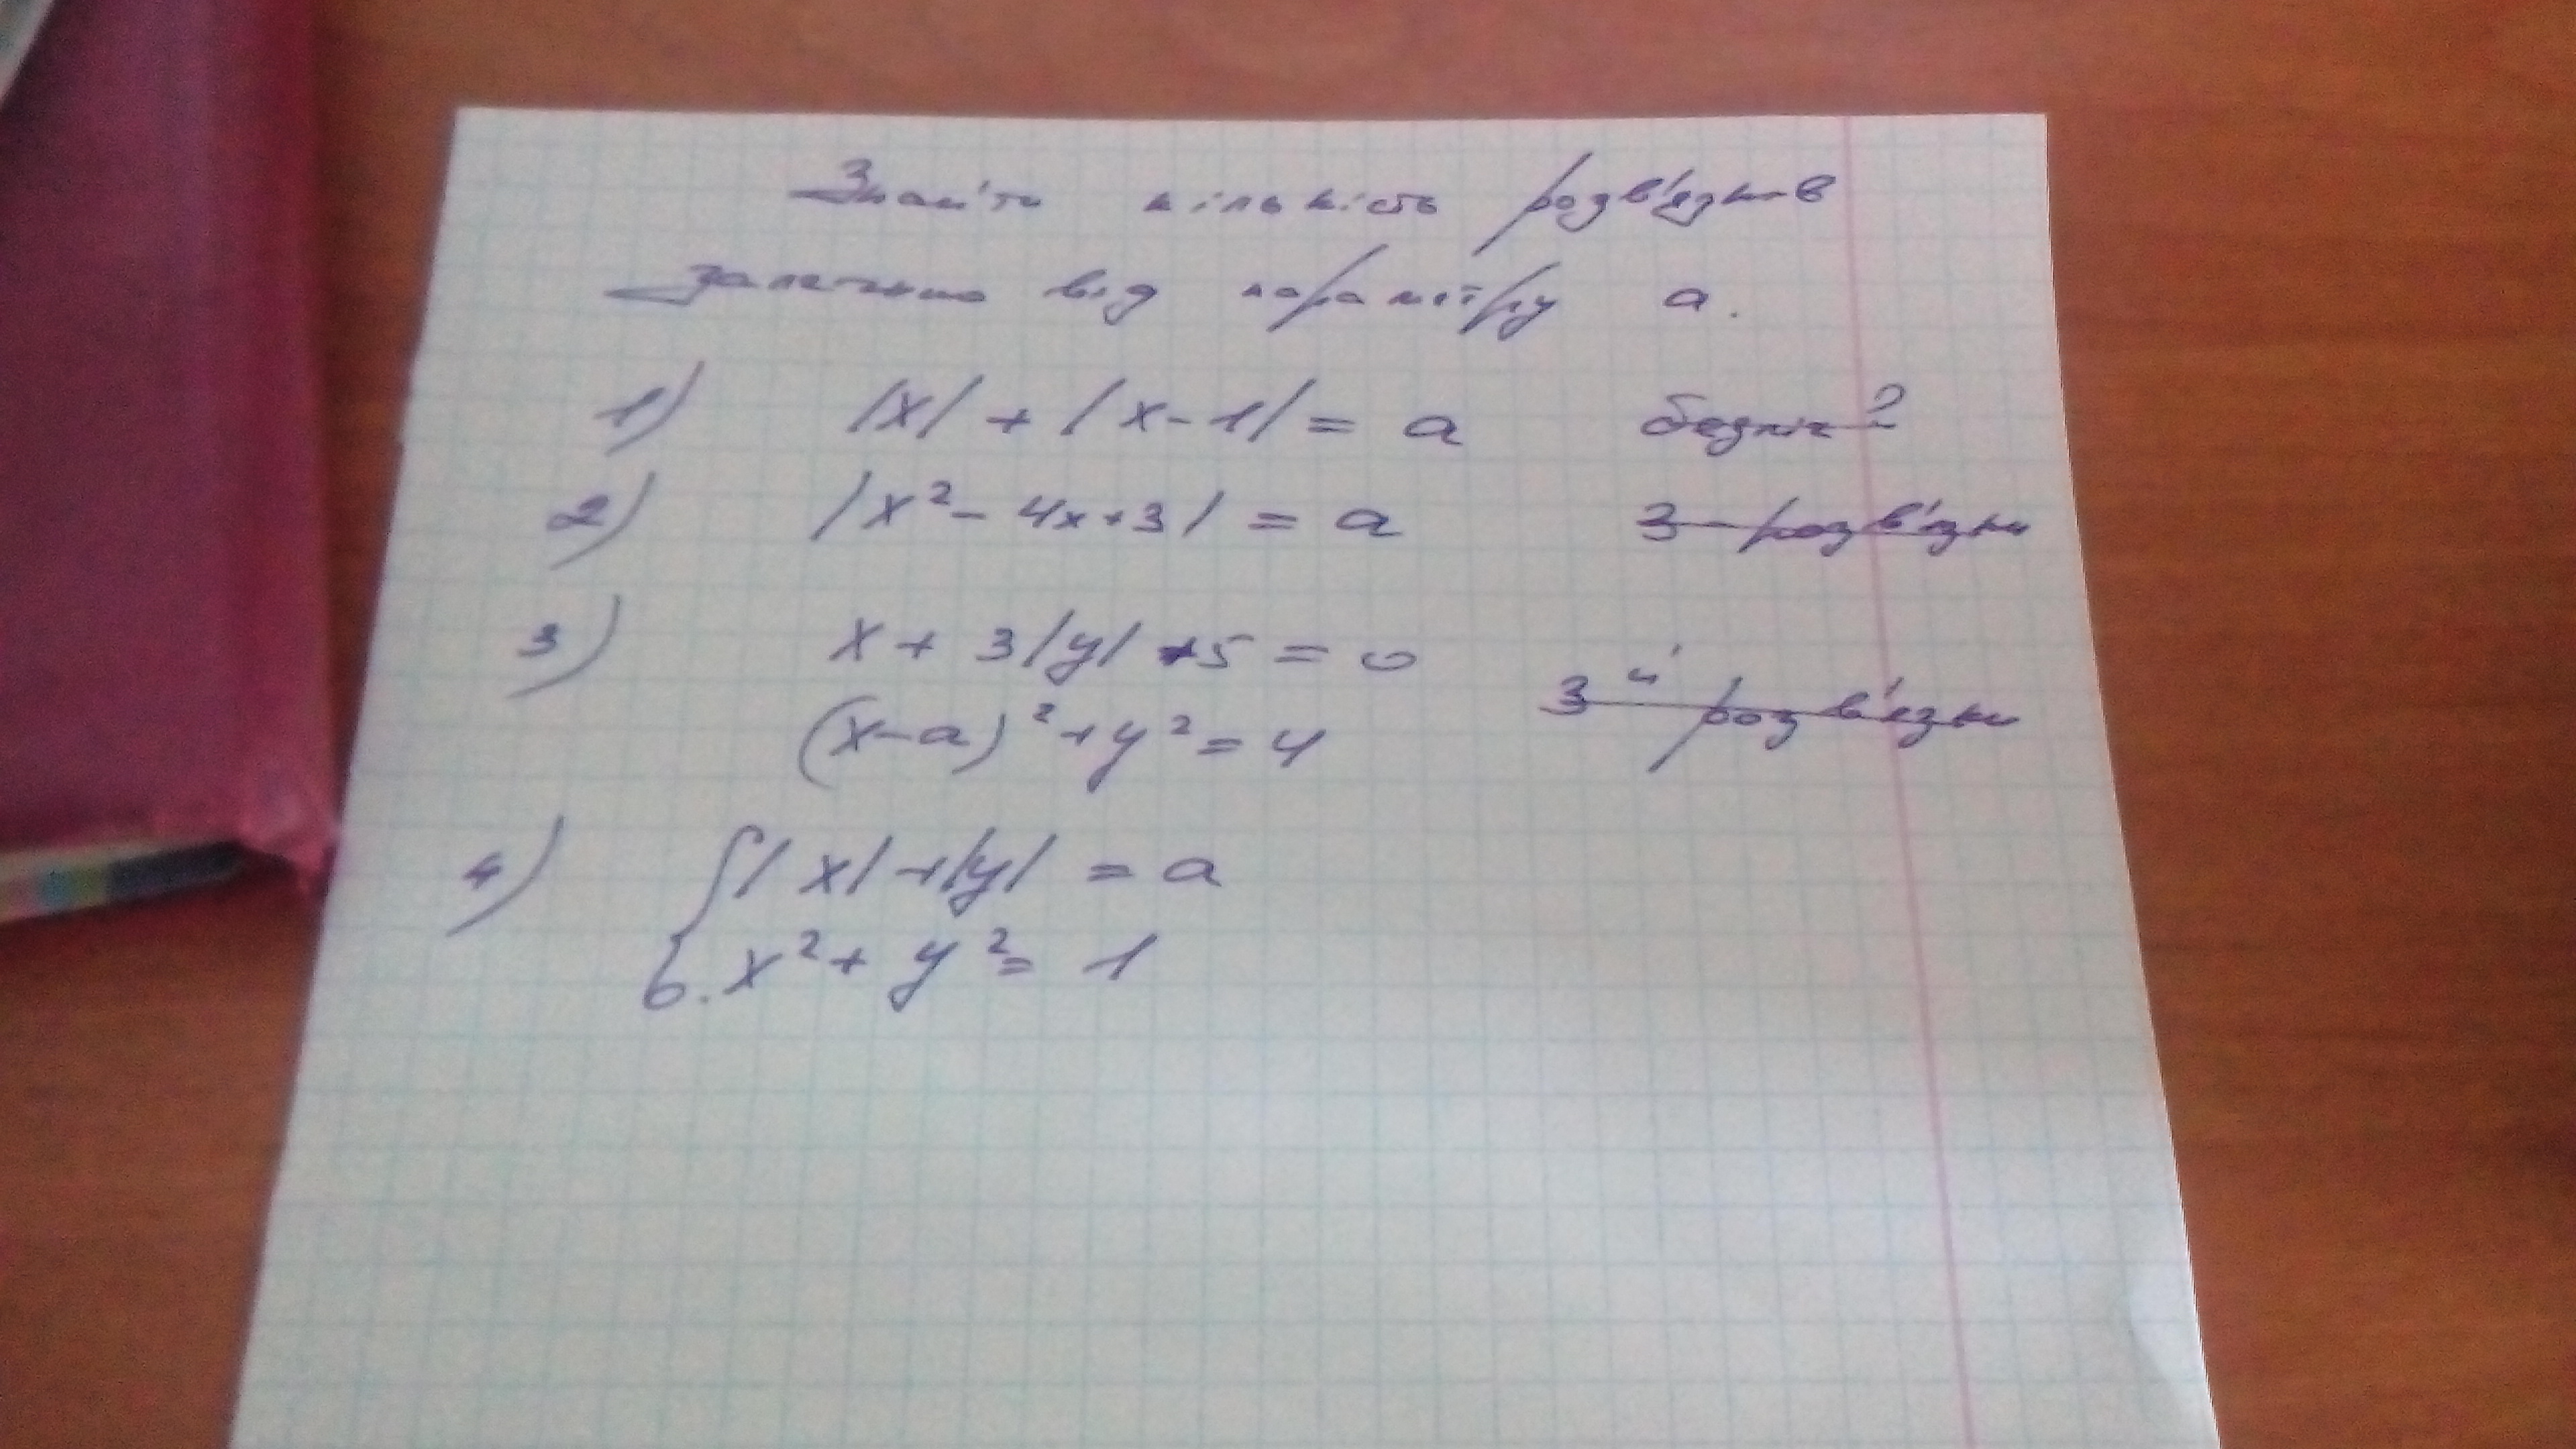 Знайти кількість розв'язків
залежно від параметру a.
1) |x| + |x-1| = a безліч?
2) |x²- 4x+3| = a 3 розв'язки
3) x + 3|y| +5 = 0
(x-a)²+y²=4 3 розв'язки
4) {|x|+|y| = a
x²+ y²= 1